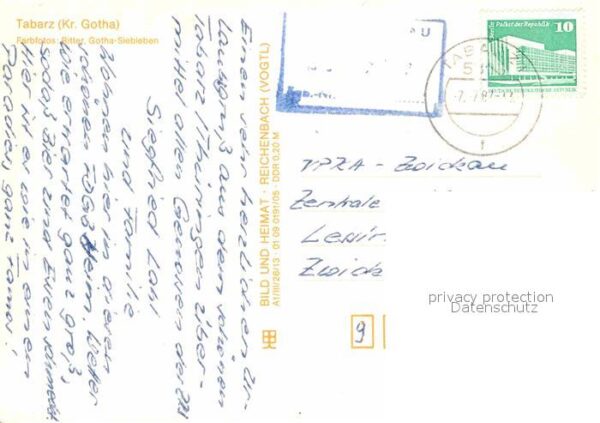 Tabarz (Kr. Gotha)
Farbfotos: Ritter, Gotha-Siebleben
Einen sehr herzlichen Ur-
laubsgruß aus dem schönen
Tabarz / Thüringen über-
mittelt allen Genossen der
Siegfried
und Familie
Wohnen hier in diesem
schönen FDGB Heim. Wetter
wie erwartet ganz groß,
sodaß Bier zum
Hier ist es wie in einem
Paradies, ganz
BILD UND HEIMAT · REICHENBACH (VOGTL)
A1/III/26/13 · 01 09 0191/05 · DDR 0,20 M
AU
Berlin, Palast der Republik
10
DEUTSCHE DEMOKRATISCHE REPUBLIK
TABARZ
VPKA - Zwickau
Zentrale
Zwick
9
privacy protection
Datenschutz